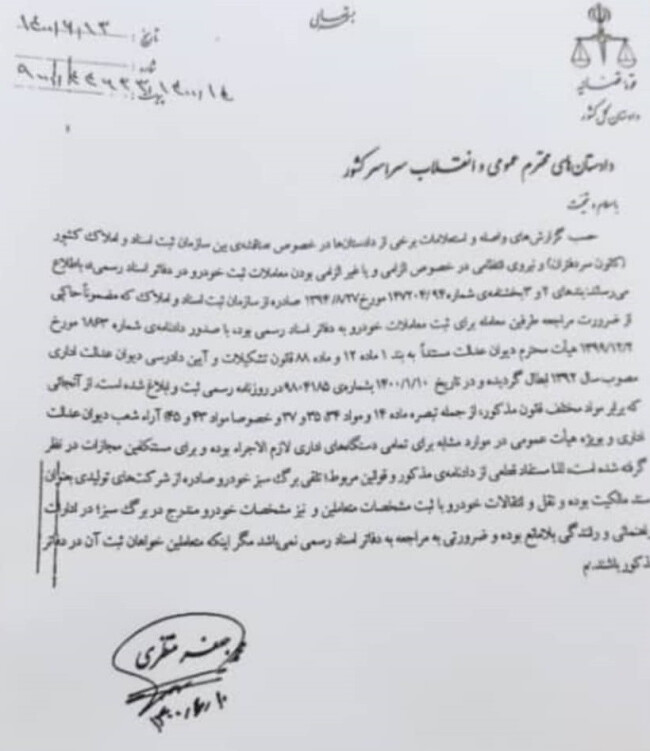 بسمه تعالی
قوه قضائیه
دادستان کل کشور
تاریخ: ۱۴۰۰,۶,۱۳
شماره:
دادستان‌های محترم عمومی و انقلاب سراسر کشور
باسلام و تحیت
حسب گزارش‌های واصله و استعلامات برخی از دادستان‌ها در خصوص مناقشه‌ی بین سازمان ثبت اسناد و املاک کشور
(کانون سردفتران) و نیروی انتظامی در خصوص الزامی و یا غیر الزامی بودن معاملات ثبت خودرو در دفاتر اسناد رسمی، باطلاع
می‌رساند بندهای ۲ و ۳ بخشنامه‌ی شماره ۱۴۷۲۰۴/۹۴ مورخ ۱۳۹۴/۸/۲۷ صادره از سازمان ثبت اسناد و املاک که مضموناً حاکی
از ضرورت مراجعه طرفین معامله برای ثبت معاملات خودرو به دفاتر اسناد رسمی بوده با صدور دادنامه‌ی شماره ۱۸۶۳ مورخ
۱۳۹۹/۱۲/۲ هیأت محترم دیوان عدالت مستنداً به بند ۱ ماده ۱۲ و ماده ۸۸ قانون تشکیلات و آیین دادرسی دیوان عدالت اداری
مصوب سال ۱۳۹۲ ابطال گردیده و در تاریخ ۱۴۰۰/۱/۱۰ بشماره‌ی ۹۸۰۴۱۸۵ در روزنامه رسمی ثبت و ابلاغ شده است. از آنجائی
که برابر مواد مختلف قانون مذکور، از جمله تبصره ماده ۱۴ و مواد ۳۴، ۳۵ و ۳۷ و خصوصا مواد ۴۳ و ۴۵، آراء شعب دیوان عدالت
اداری و بویژه هیأت عمومی در موارد مشابه برای تمامی دستگاههای اداری لازم الاجراء بوده و برای مستنکفین مجازات در نظر
گرفته شده است، لذا مستفاد قطعی از دادنامه‌ی مذکور و قوانین مربوط؛ تلقی برگ سبز خودرو صادره از شرکت‌های تولیدی بعنوان
سند مالکیت بوده و نقل و انتقالات خودرو با ثبت مشخصات متعاملین و نیز مشخصات خودرو مندرج در برگ سبز؛ در ادارات
راهنمائی و رانندگی بلامانع بوده و ضرورتی به مراجعه به دفاتر اسناد رسمی نمی‌باشد مگر اینکه متعاملین خواهان ثبت آن در دفاتر
مذکور باشند.م
محمد جعفر منتظری